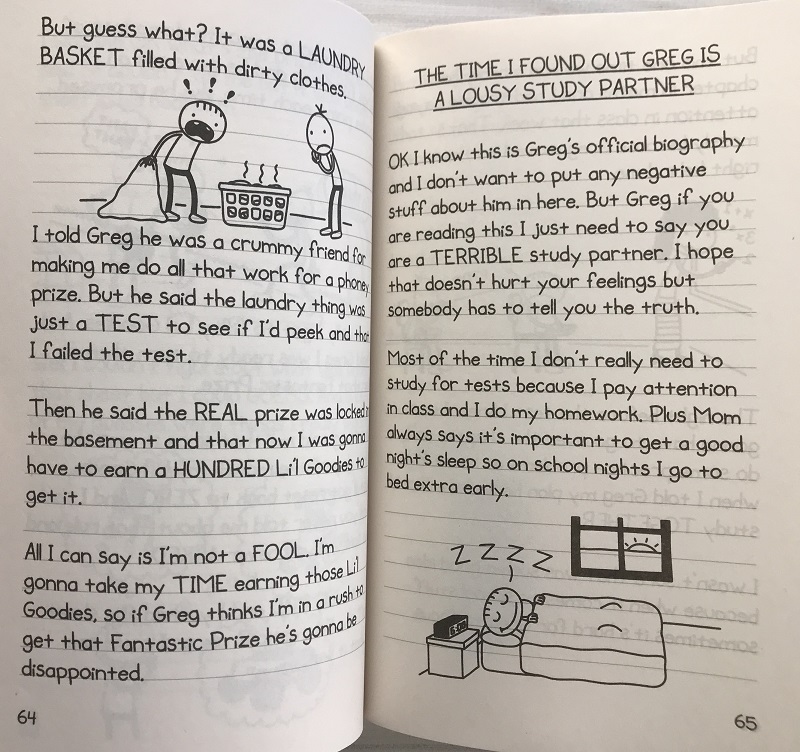 But guess what? It was a LAUNDRY
BASKET filled with dirty clothes.
! ! !
I told Greg he was a crummy friend for
making me do all that work for a phoney
prize. But he said the laundry thing was
just a TEST to see if I'd peek and that
I failed the test.
Then he said the REAL prize was locked in
the basement and that now I was gonna
have to earn a HUNDRED Li'l Goodies to
get it.
All I can say is I'm not a FOOL. I'm
gonna take my TIME earning those Li'l
Goodies, so if Greg thinks I'm in a rush to
get that Fantastic Prize he's gonna be
disappointed.
64
THE TIME I FOUND OUT GREG IS
A LOUSY STUDY PARTNER
OK I know this is Greg's official biography
and I don't want to put any negative
stuff about him in here. But Greg if you
are reading this I just need to say you
are a TERRIBLE study partner. I hope
that doesn't hurt your feelings but
somebody has to tell you the truth.
Most of the time I don't really need to
study for tests because I pay attention
in class and I do my homework. Plus Mom
always says it's important to get a good
night's sleep so on school nights I go to
bed extra early.
Z Z Z Z
65